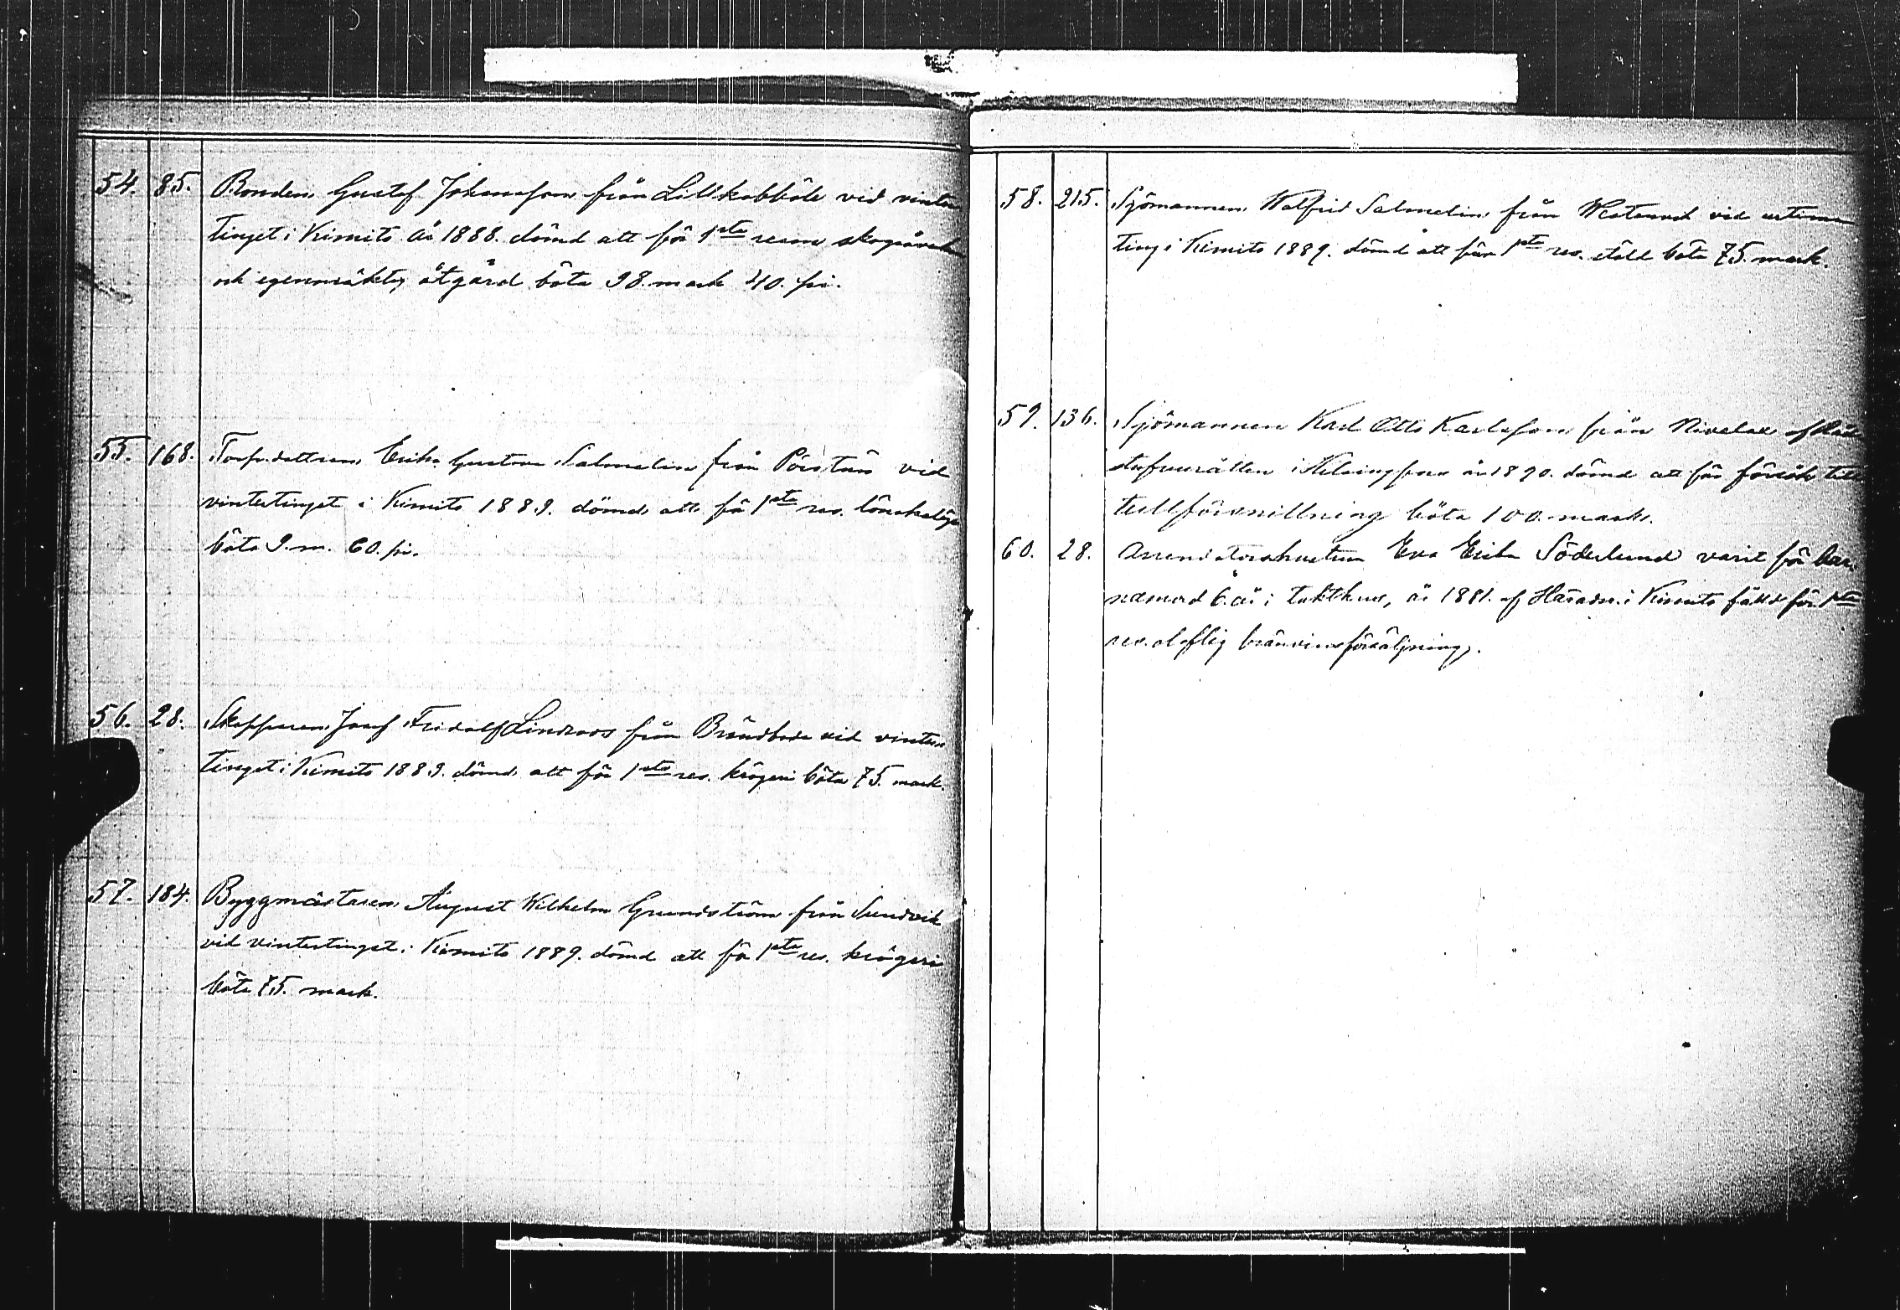 54. 85. Bonden Gustaf Johansson från Lillkobböle vid vinter
tinget i Kimito år 1888. dömd att för 1sta resan skogsåverk
och egenmäktig åtgärd böta 98. mark 40. pi.
55. 168. Torp.dottren Erika Gustava Salmelin från vid
vintertinget i Kimito 1889. dömd att för 1sta res. lönskaläge
böta 9. m. 60. pi.
56. 28. Skepparen Josef Fridolf Lindroos från vid vinter
tinget i Kimito 1889. dömd att för 1sta res. krögeri böta 75. mark.
57. 184. Byggmästaren August Wilhelm Grundström från Sundvik
vid vintertinget i Kimito 1889. dömd att för 1sta res. krögeri
böta 75. mark.
58. 215. Sjömannen Walfrid Salmelin från vid
ting i Kimito 1889. dömd att för 1sta res. stöld böta 75. mark.
59. 136. Sjömannen Karl Otto Karlsson från Nivelax af Råd
stufvurätten i Helsingfors år 1890. dömd att för försök till
tullförsnillning böta 100. mark.
60. 28. Arrendatorshustrun Eva Erika Söderlund varit för bar
namord 6. år i tukthus, år 1881. af Häradsr. i Kimito fälld för 1sta
res. olaflig bränvinsförsäljning.